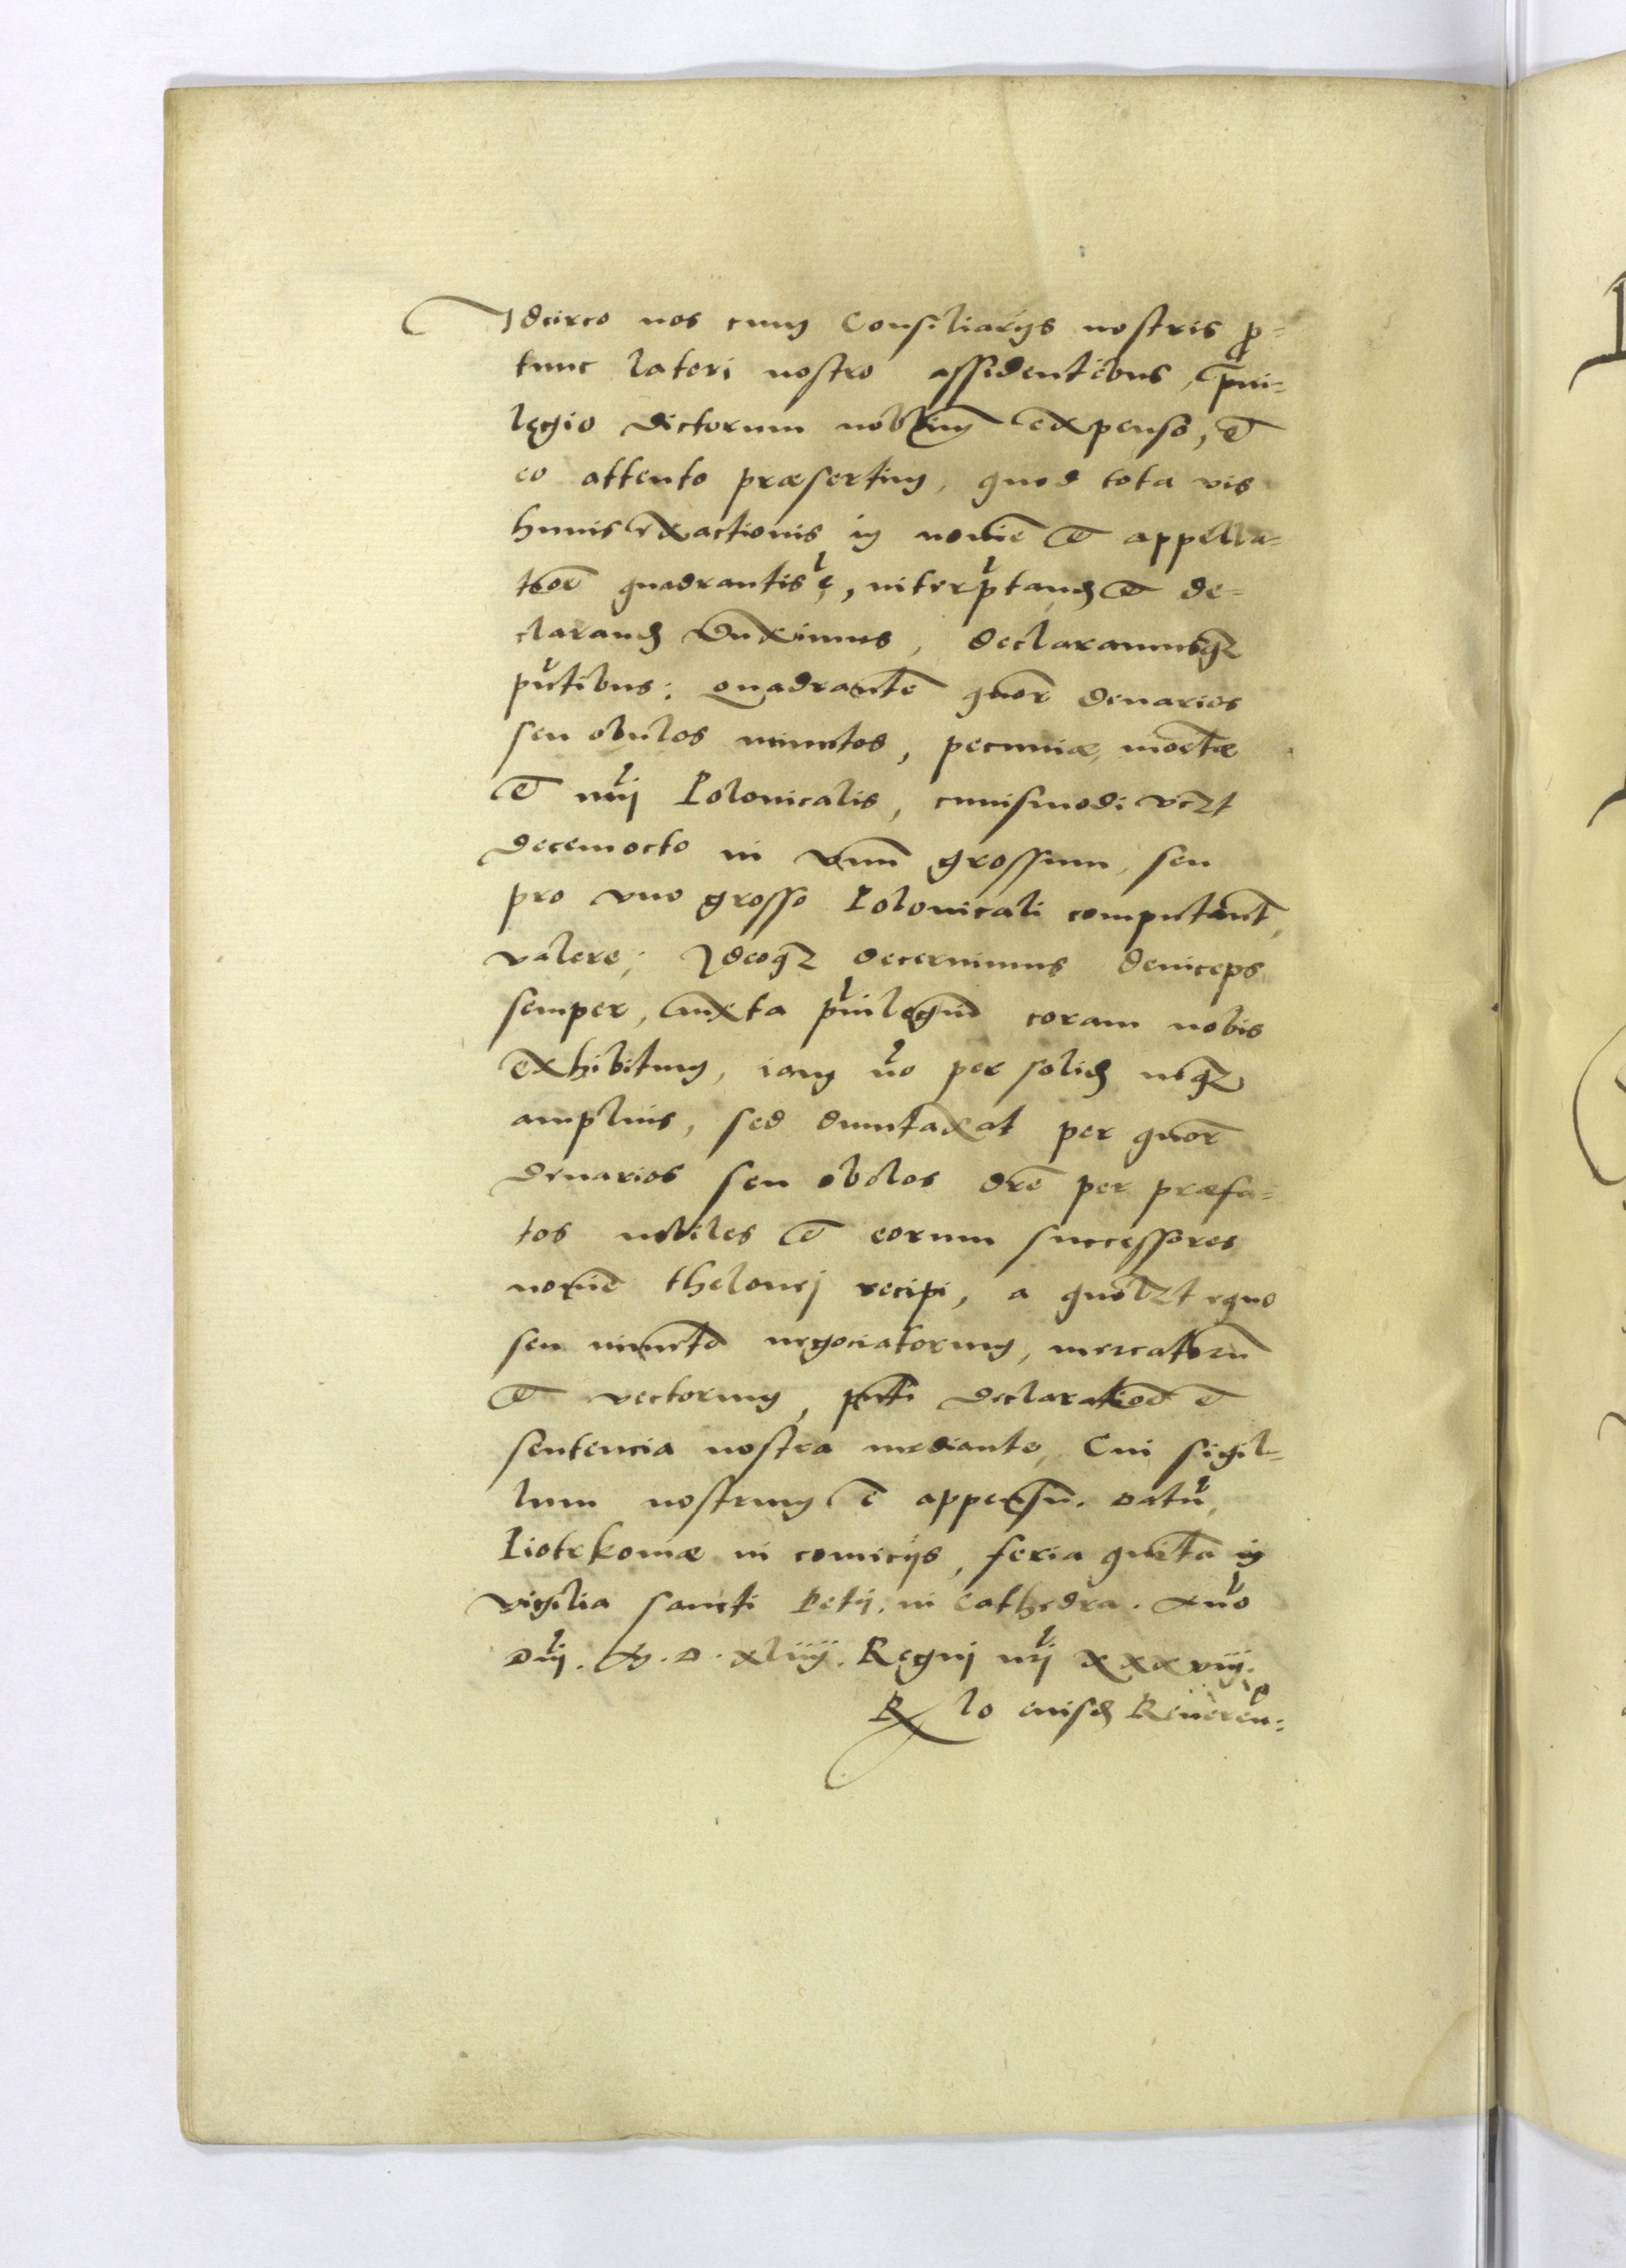 Idcirco nos cum Consiliarijs nostris p=
tunc lateri nostro assidentibus, priui=
legio dictorum nobilium expenso, et
eo attento præsertim, quod tota vis
huius exactionis in nomine et appella=
tioe quadrantis ē, interptand et de=
clarand duximus, declaramusqz
pntibus: quadrantē quor denarios
seu obulos minutos, pecuniæ, monetæ
et nrij Polonicalis, cuiusmodi vizt
decemocto in vnū grossum, seu
pro vno grosso Polonicali computant,
valere; Ideoqz decernimus deinceps
semper, iuxta priuilegiū coram nobis
exhibitum, iam nō per solid neqz
amplius, sed duntaxat per quor
denarios seu obolos dre per præfa=
tos nobiles et eorum successores
nomine thelonej recipi, a quolzt equo
seu iumēto negociatorum, mercatorū
et vectorum, pnti declaratioe et
sentencia nostra mediante, Cui sigil=
lum nostrum ē appensū. Datū
Piotrkouiæ in comicijs, feria quīta in
vigilia sancti Petrj. in Cathedra. Año
Dnij. M.D.xliiij. Regnj nrj xxxviij.
Rlo eiusd Reueren=